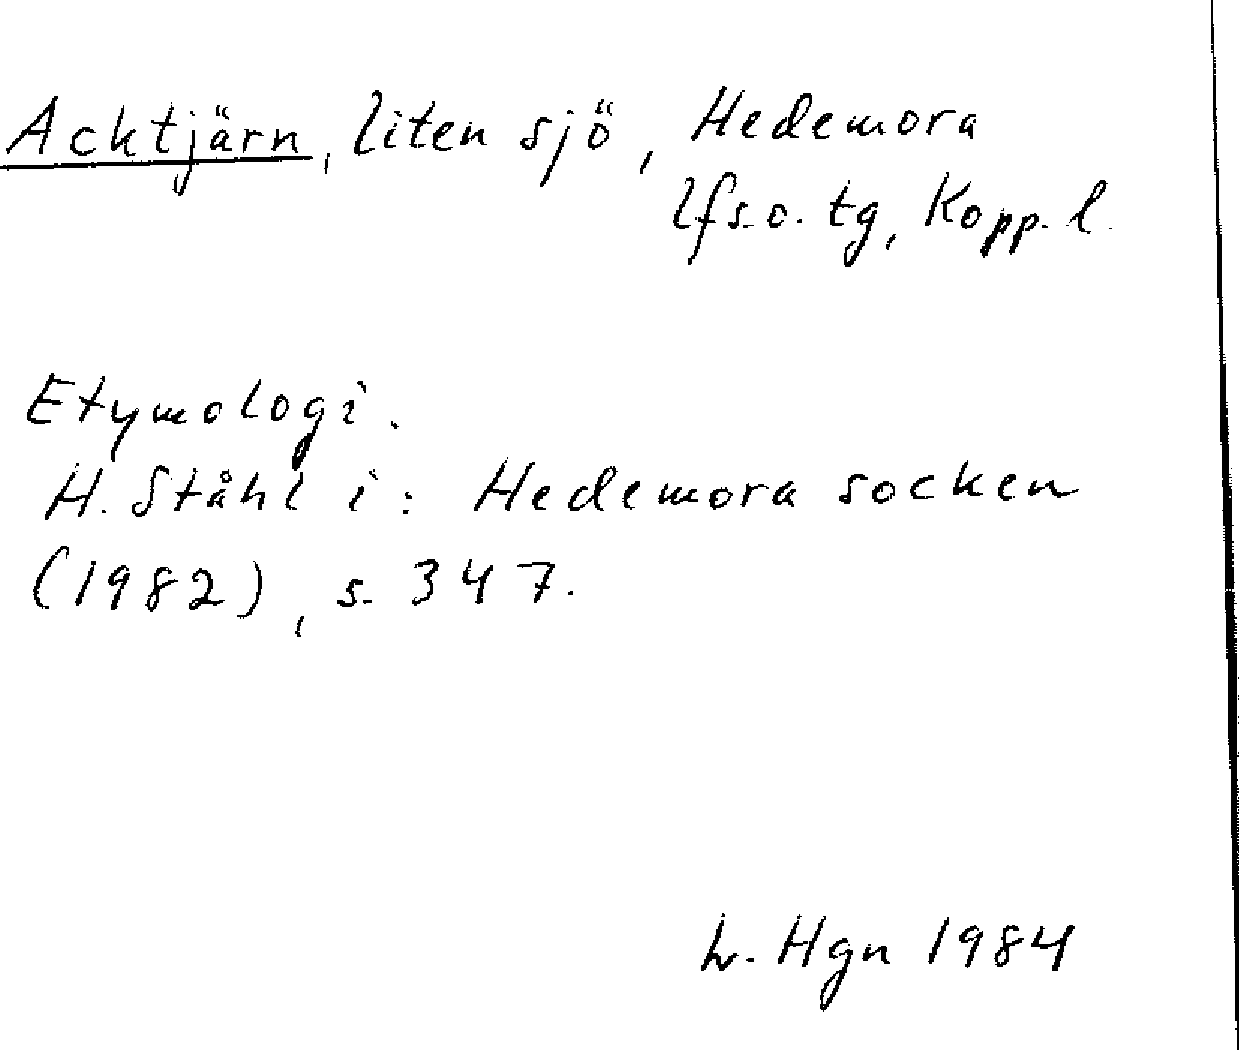 Acktjärn, liten sjö, Hedemora
lfs. o. tg, Kopp. l.
Etymologi.
H. Ståhl i: Hedemora socken
(1982), s. 347.
L. Hgn 1984